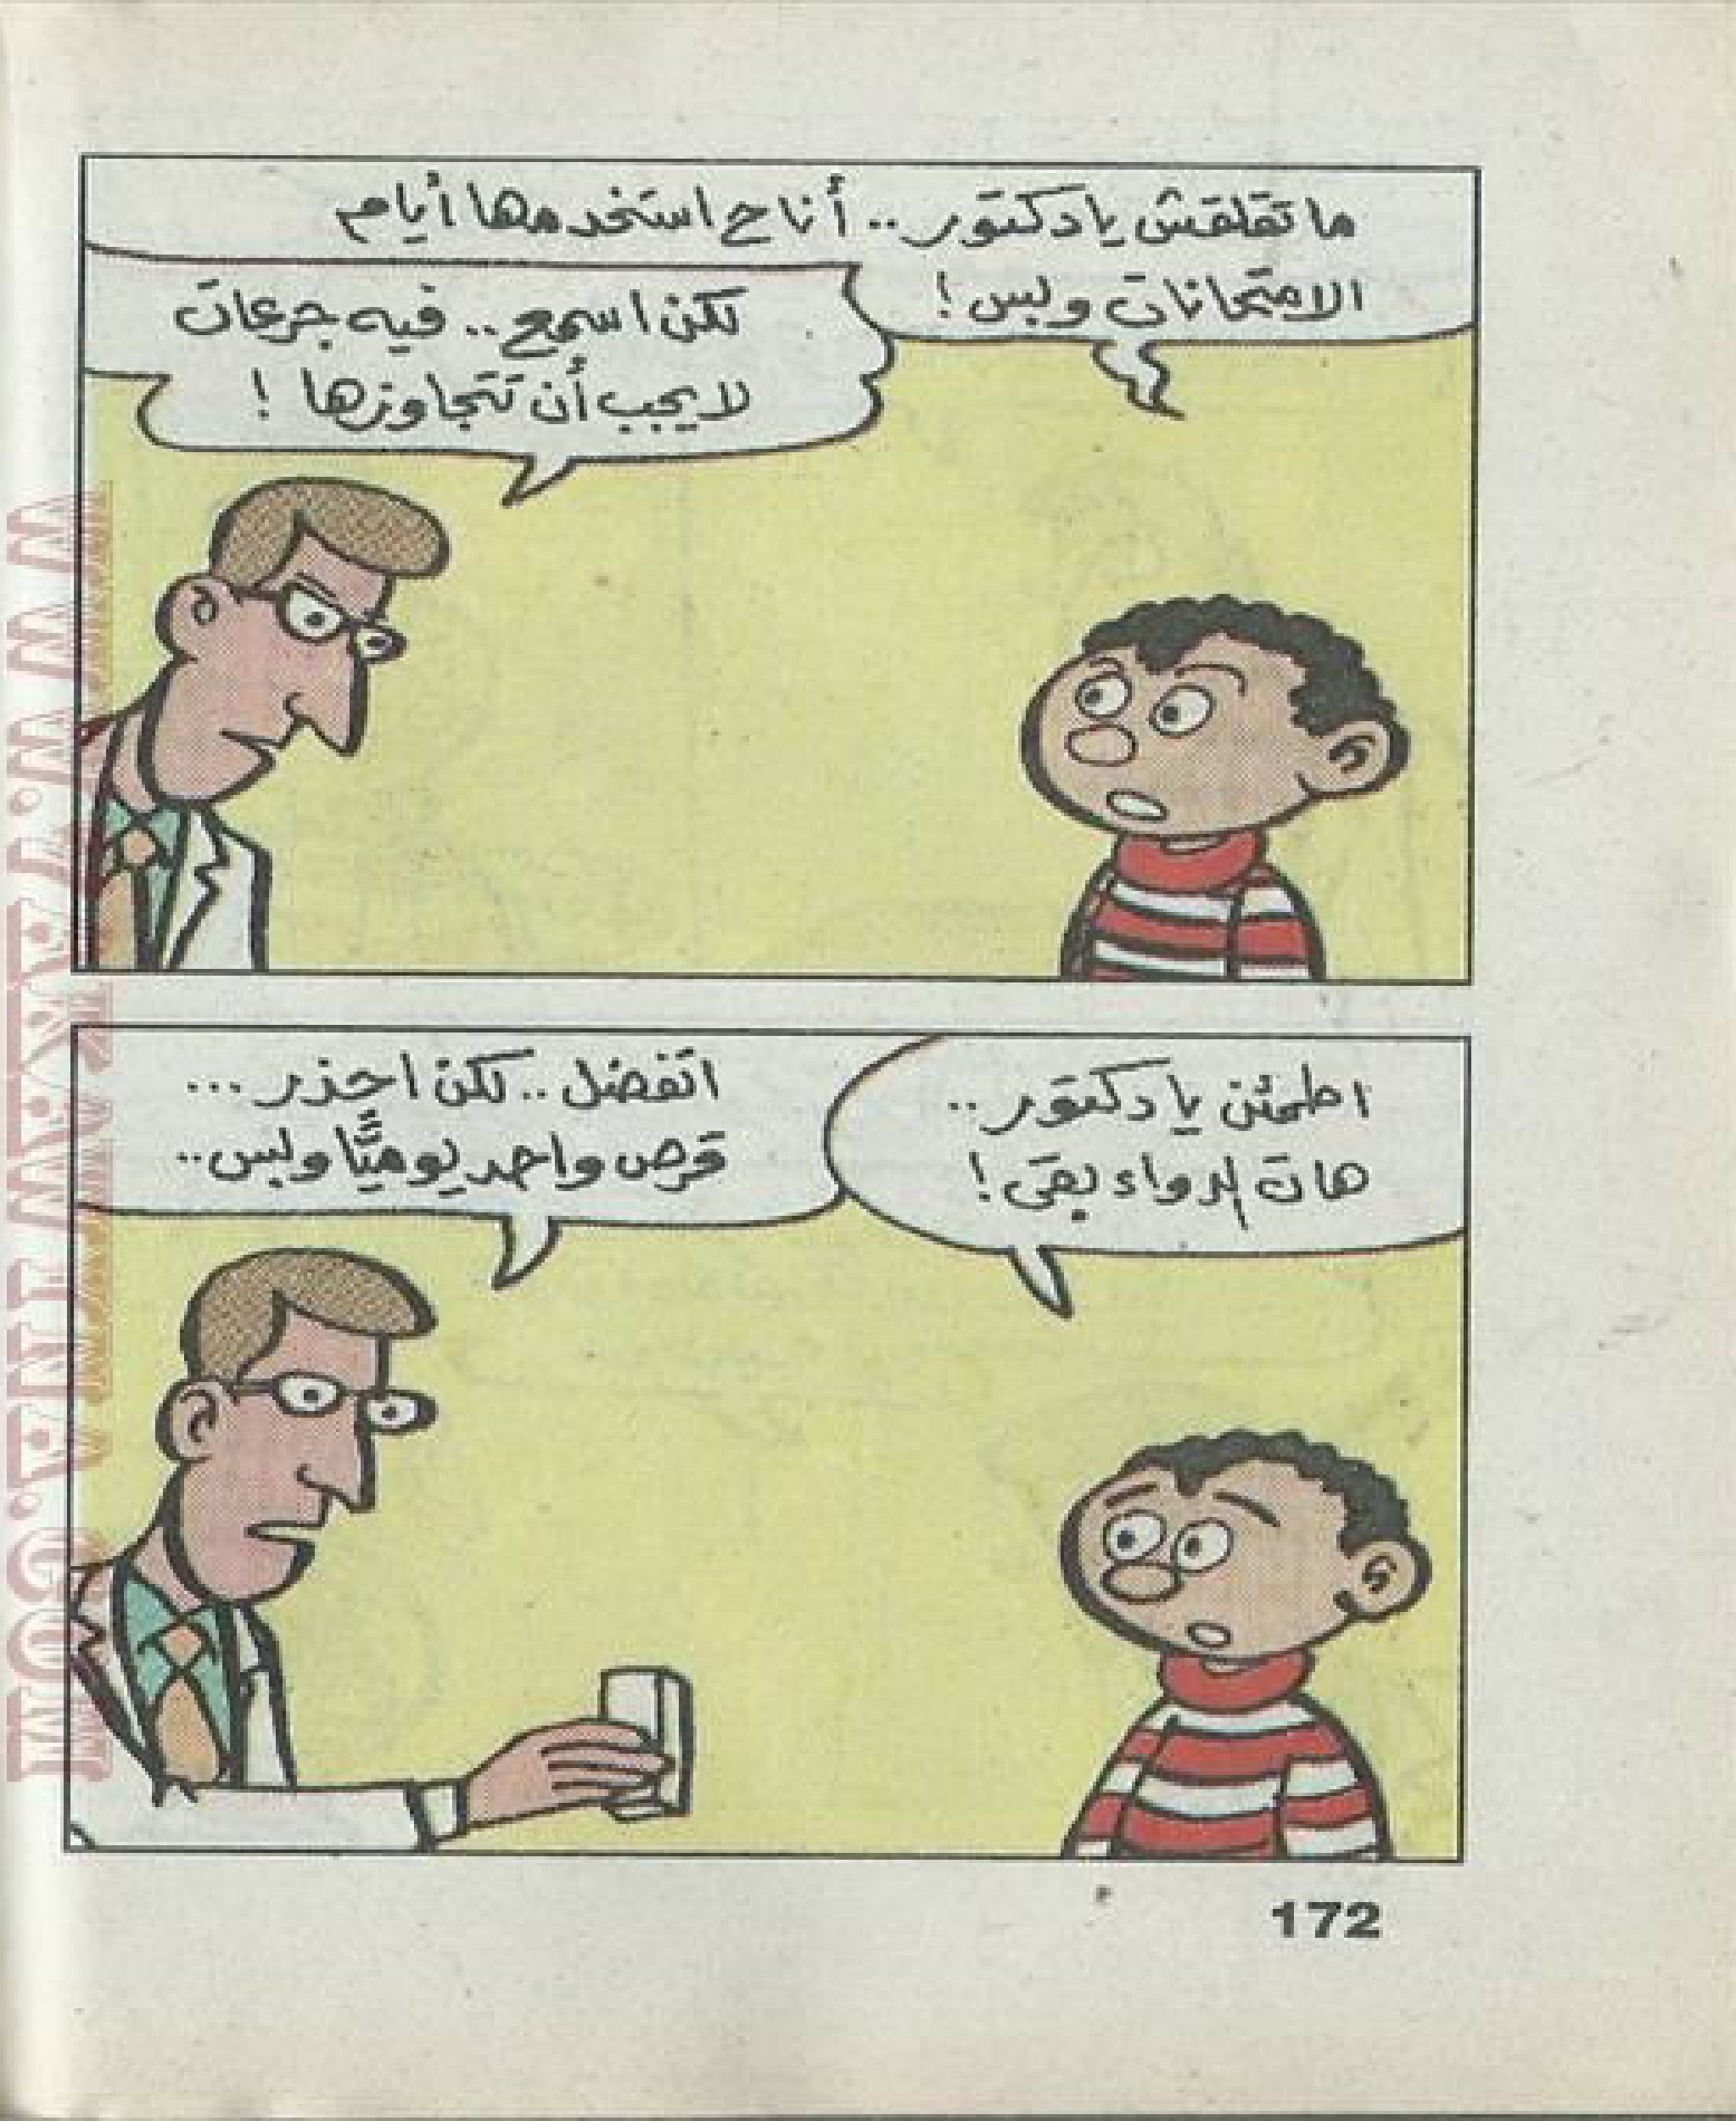 ما تقلقش يا دكتور.. أنا ح استخدمها أيام
الامتحانات وبس!
لكن اسمع.. فيه جرعات
لا يجب أن تتجاوزها!
اطمئن يا دكتور..
هات الدواء بقى!
اتفضل.. لكن احذر...
قرص واحد يوميًّا وبس..
172
WWW.
.COM